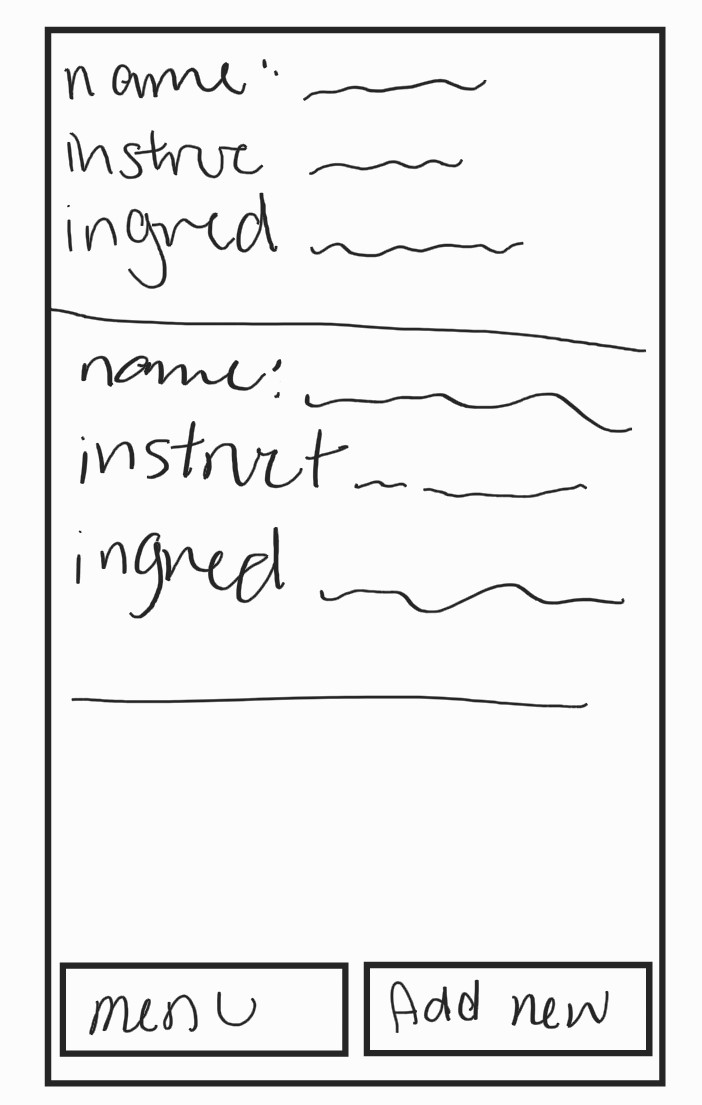 name:
instruc
ingred
name:
instruct
ingred
menu
Add new